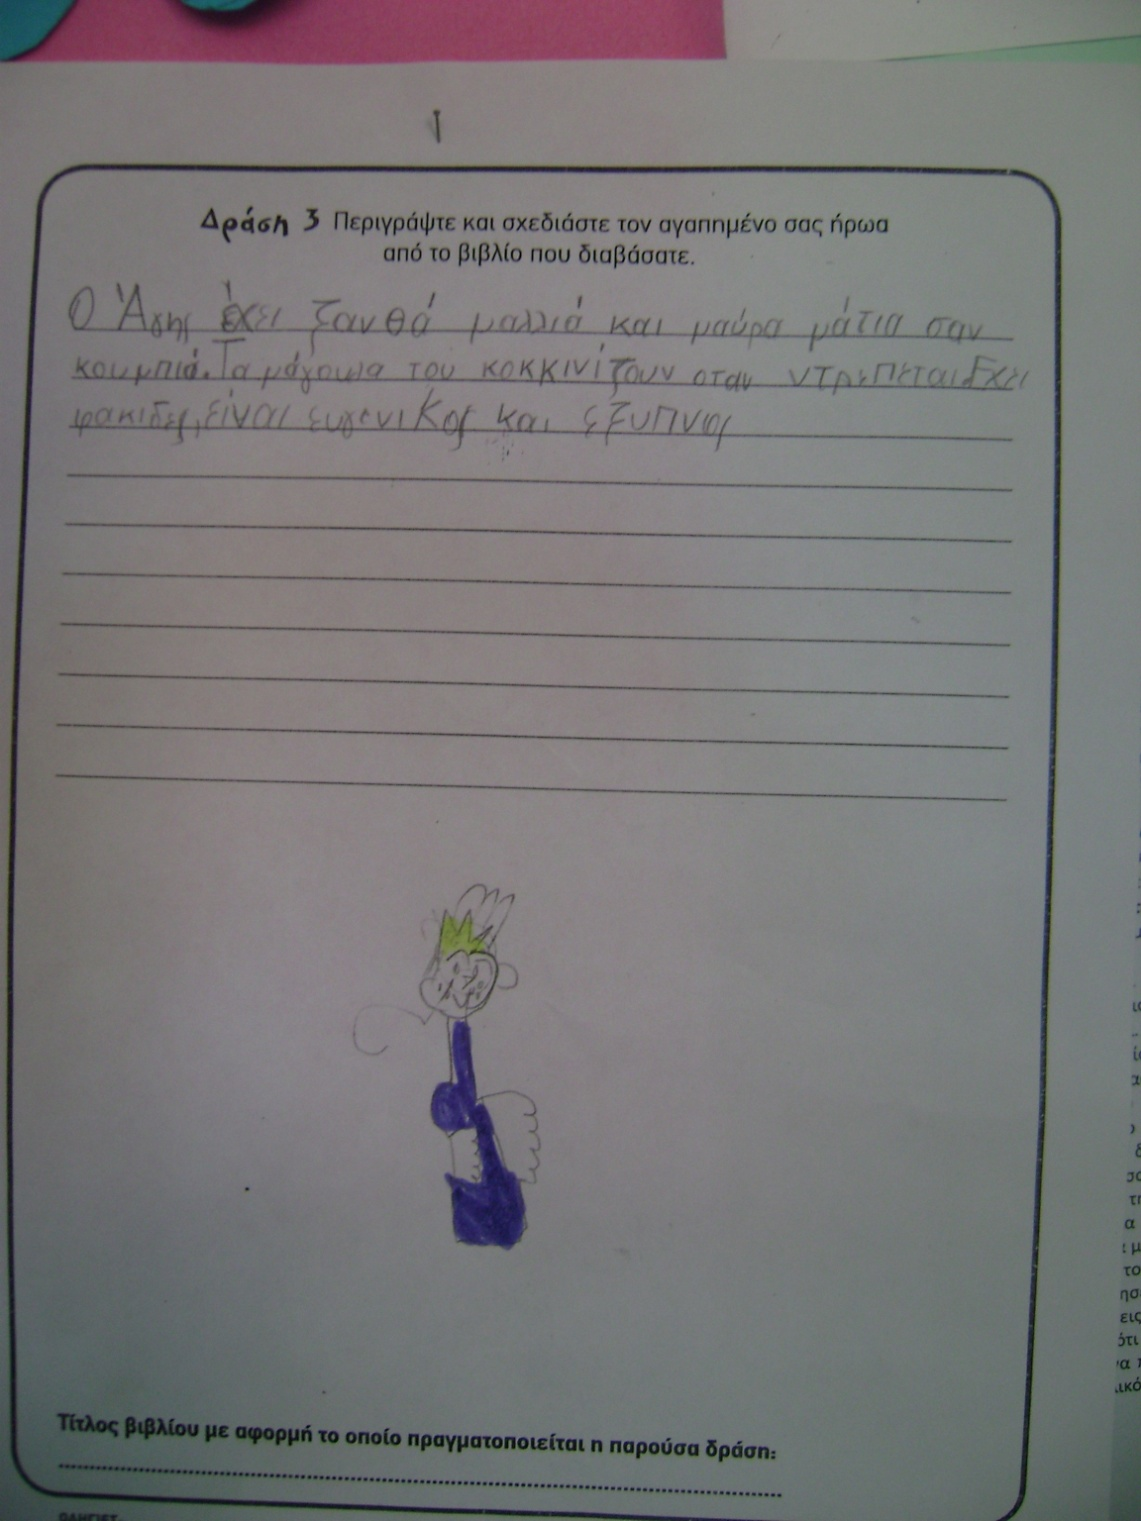 Δράση 3 Περιγράψτε και σχεδιάστε τον αγαπημένο σας ήρωα
από το βιβλίο που διαβάσατε.
Ο Άγης έχει ξανθά μαλλιά και μαύρα μάτια σαν
κουμπιά. Τα μάγουλα του κοκκινίζουν οταν ντρεπεται. Εχει
φακιδες, είναι ευγενικος και εξυπνος
Τίτλος βιβλίου με αφορμή το οποίο πραγματοποιείται η παρούσα δράση: